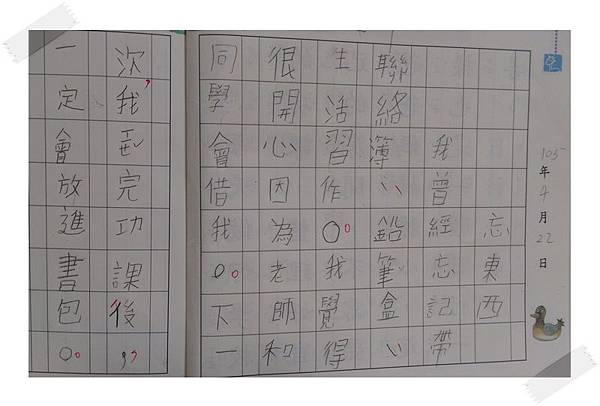 105年4月22日
忘東西
我曾經忘記帶
聯絡簿、鉛筆盒、
生活習作。我覺得
很開心因為老師和
同學會借我。下一
次我完功課後，
一定會放進書包。